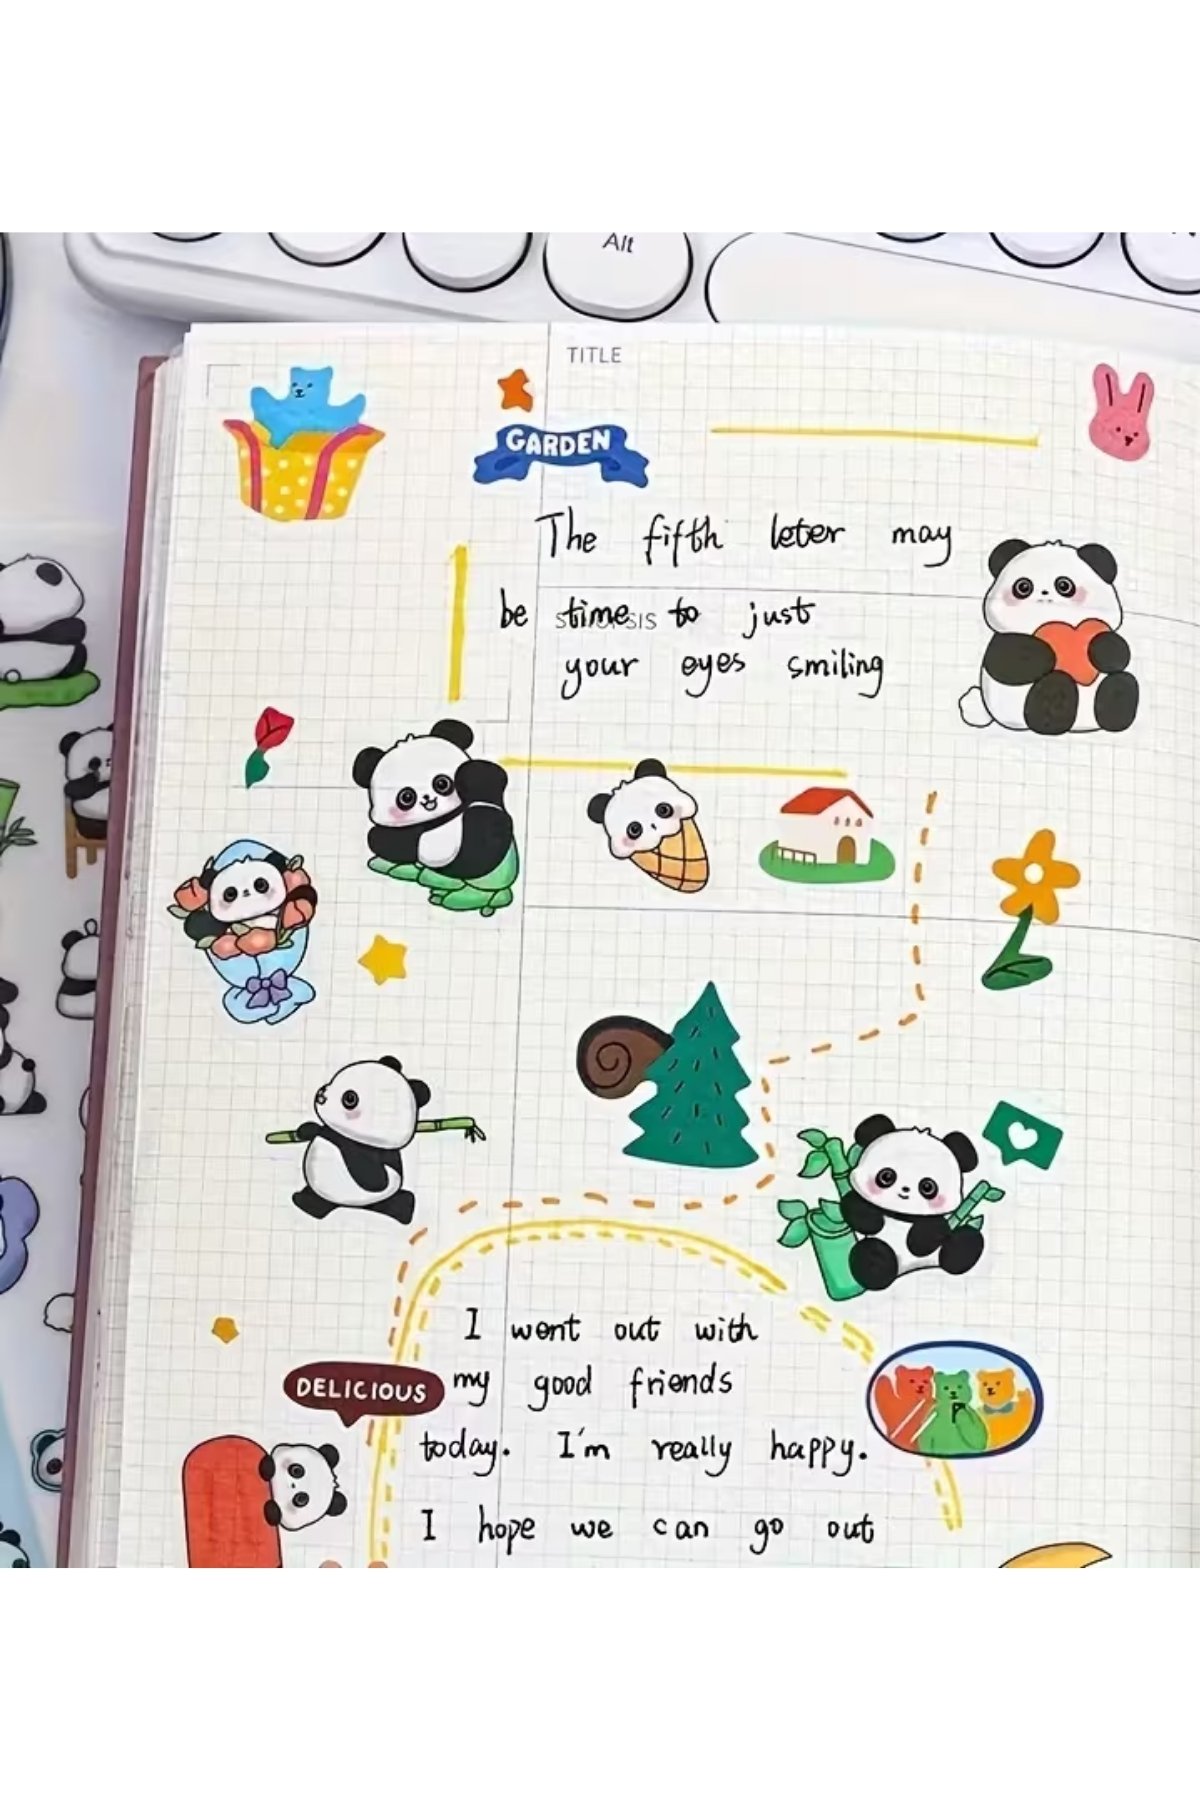 Alt
TITLE
GARDEN
The fifth leter may
be time to just
your eyes smiling
I went out with
DELICIOUS my good friends
today. I'm really happy.
I hope we can go out